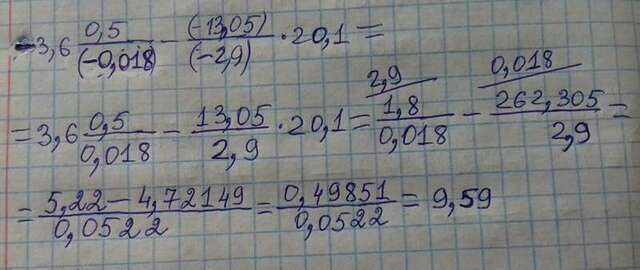 -3,6 0,5/(-0,018) - (-13,05)/(-2,9) · 20,1 =
= 3,6 0,5/0,018 - 13,05/2,9 · 20,1 = 2,9/ 1,8/0,018 - 0,018/ 262,305/2,9 =
= 5,22 - 4,72149/0,0522 = 0,49851/0,0522 = 9,59